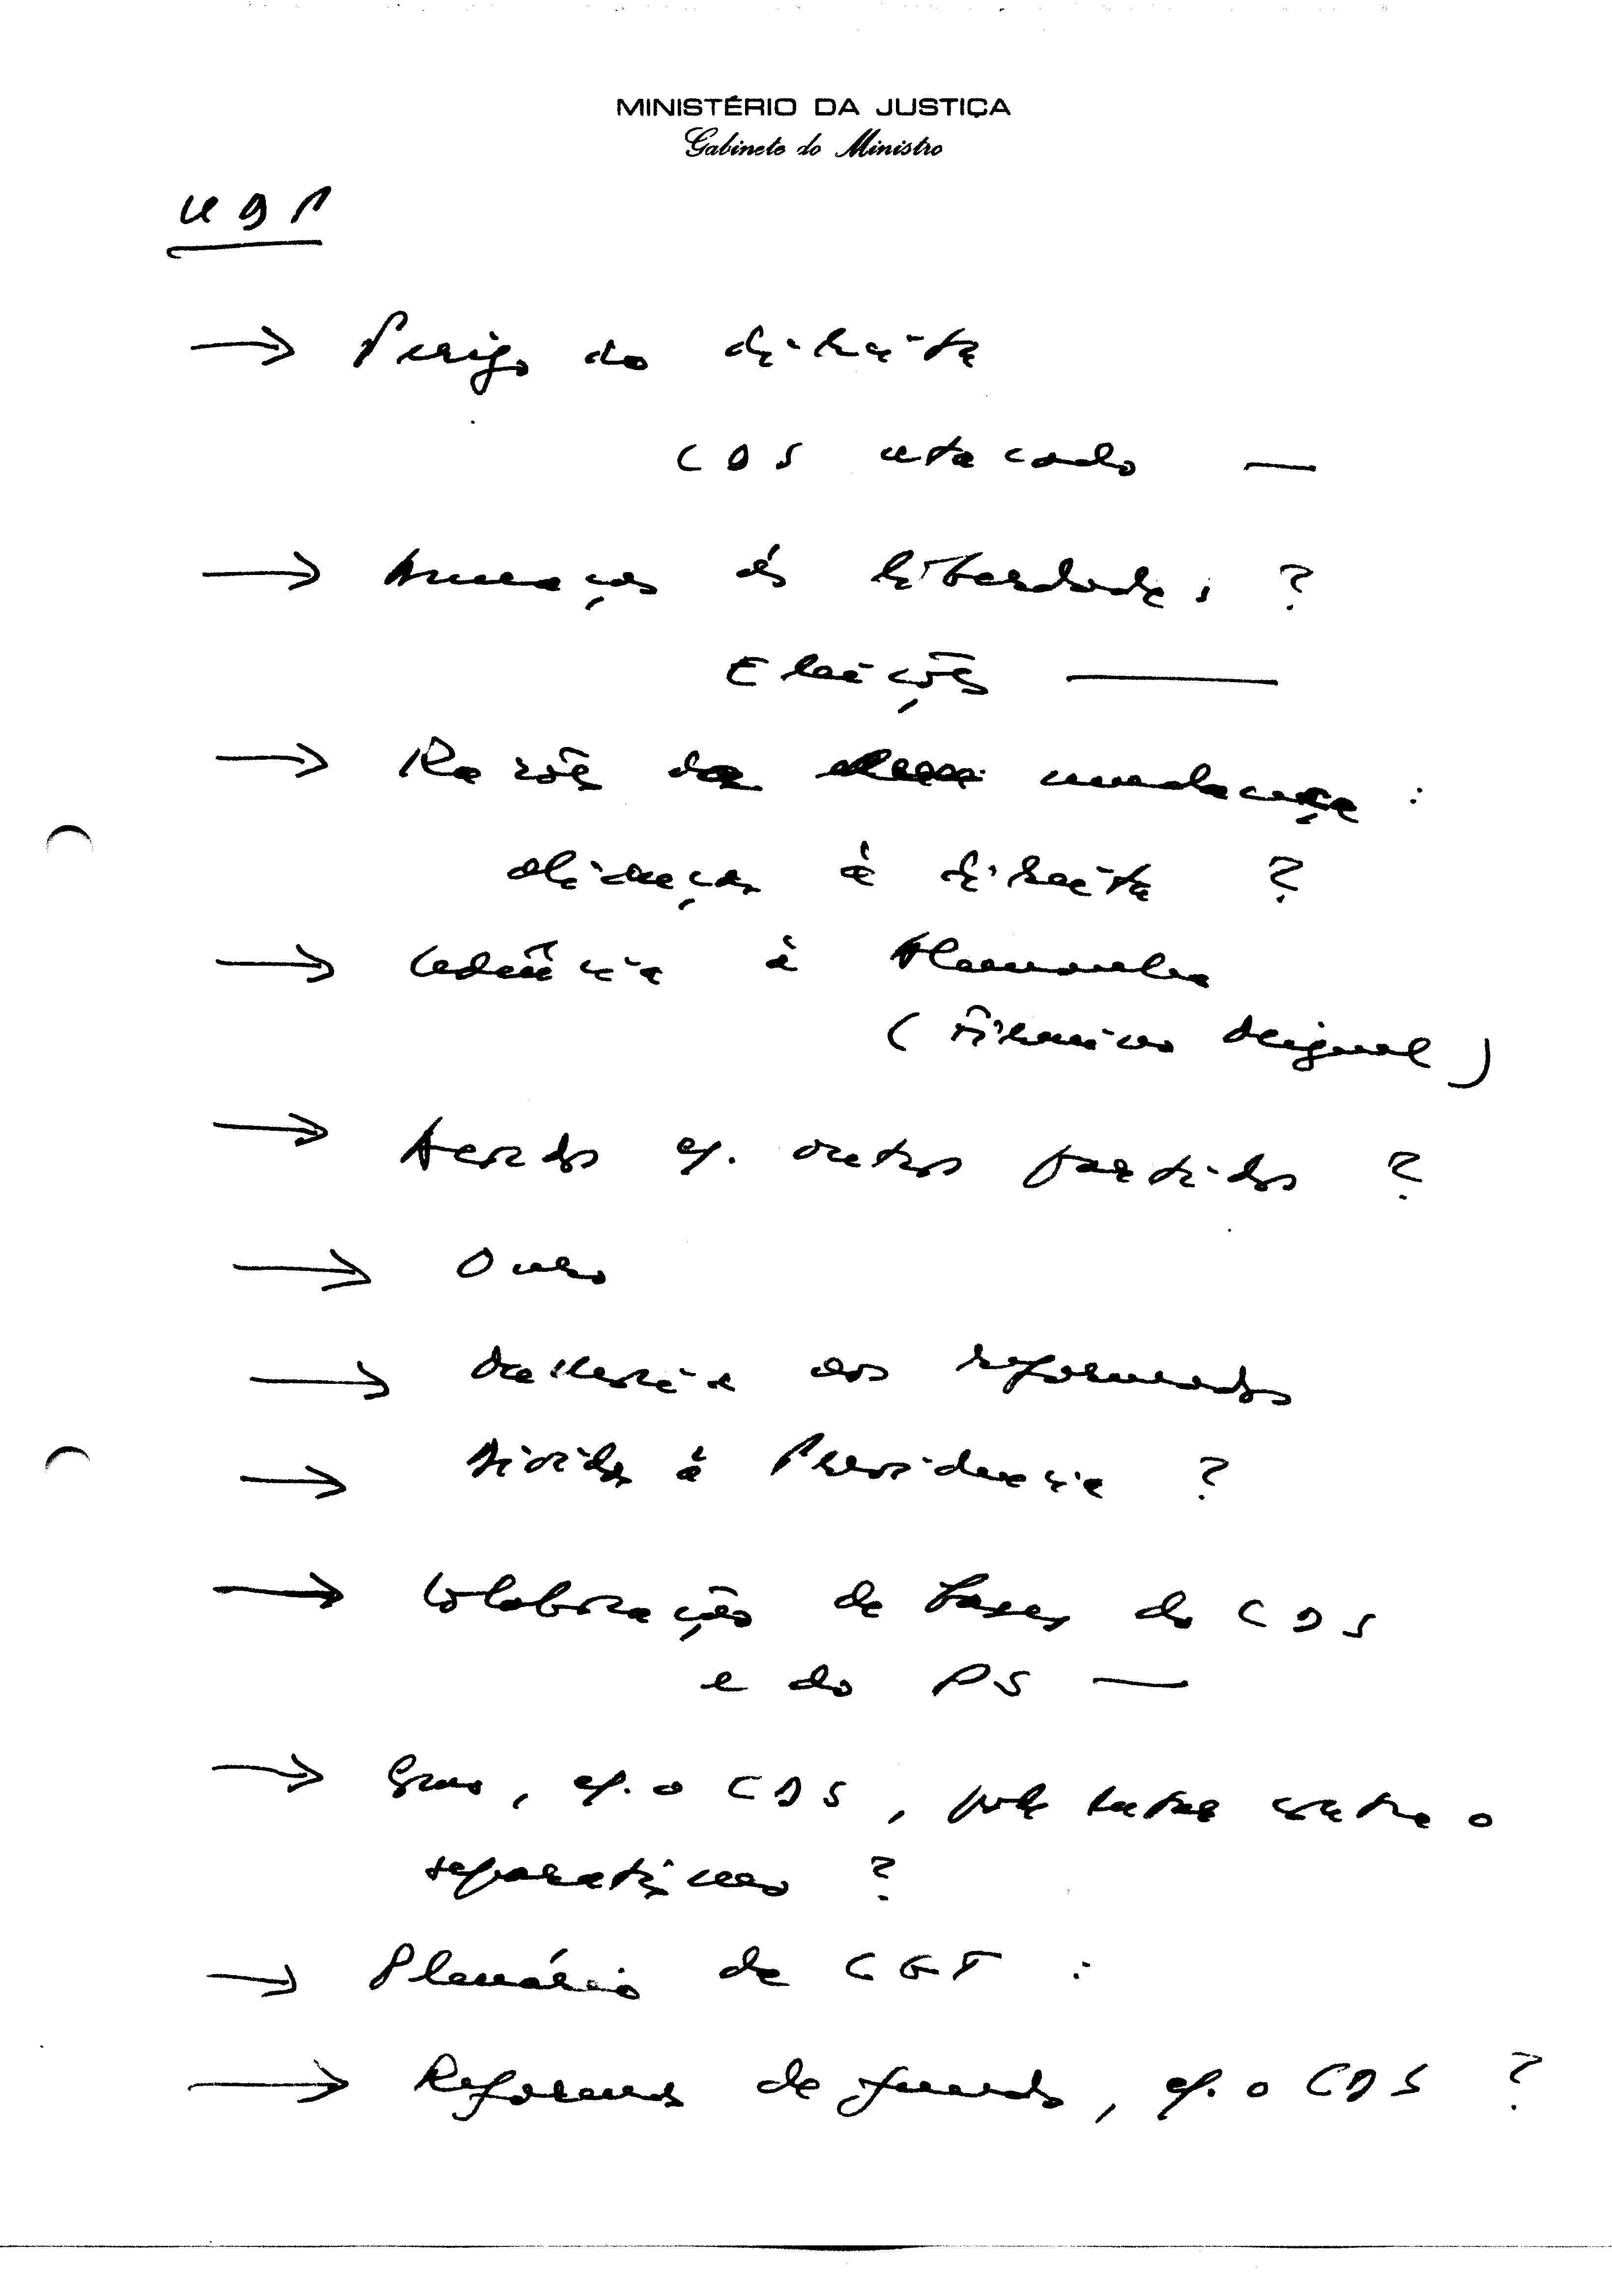 MINISTÉRIO DA JUSTIÇA
Gabinete do Ministro
UDP
→ Perigo da direita
CDS atacado —
→ Ameaças às liberdades ?
Eleições —
→ Razões da mudança :
alianças à direita ?
→ Cedência à Alemanha
( Financ desigual )
→ Acordo c/. outros partidos ?
→ Ouro
→ aos reformados
→ à Presidência ?
→ Colaboração de bases do CDS
e do PS —
→ Gov, c/. o CDS, pode lutar contra o
separatismo ?
→ Plenário da CGT :
→ Reformas de fundo, c/. o CDS ?